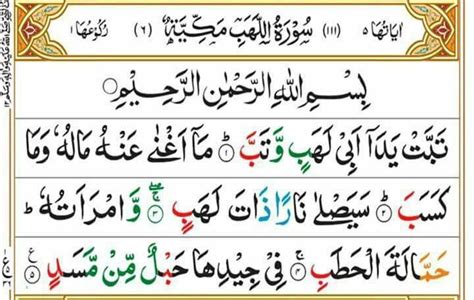 اٰیَاتُهَا ٥ (١١١) سُوْرَةُ اللَّهَبِ مَكِّیَّةٌ (٦) رُكُوْعُهَا ١
بِسْمِ اللهِ الرَّحْمٰنِ الرَّحِیْمِ
تَبَّتْ یَدَاۤ اَبِیْ لَهَبٍ وَّتَبَّ ؕ ١ مَاۤ اَغْنٰی عَنْهُ مَالُهٗ وَمَا
كَسَبَ ؕ ٢ سَیَصْلٰی نَارًا ذَاتَ لَهَبٍ ۚۖ ٣ وَّامْرَاَتُهٗ ؕ
حَمَّالَةَ الْحَطَبِ ۚ ٤ فِیْ جِیْدِهَا حَبْلٌ مِّنْ مَّسَدٍ ۠ ٥